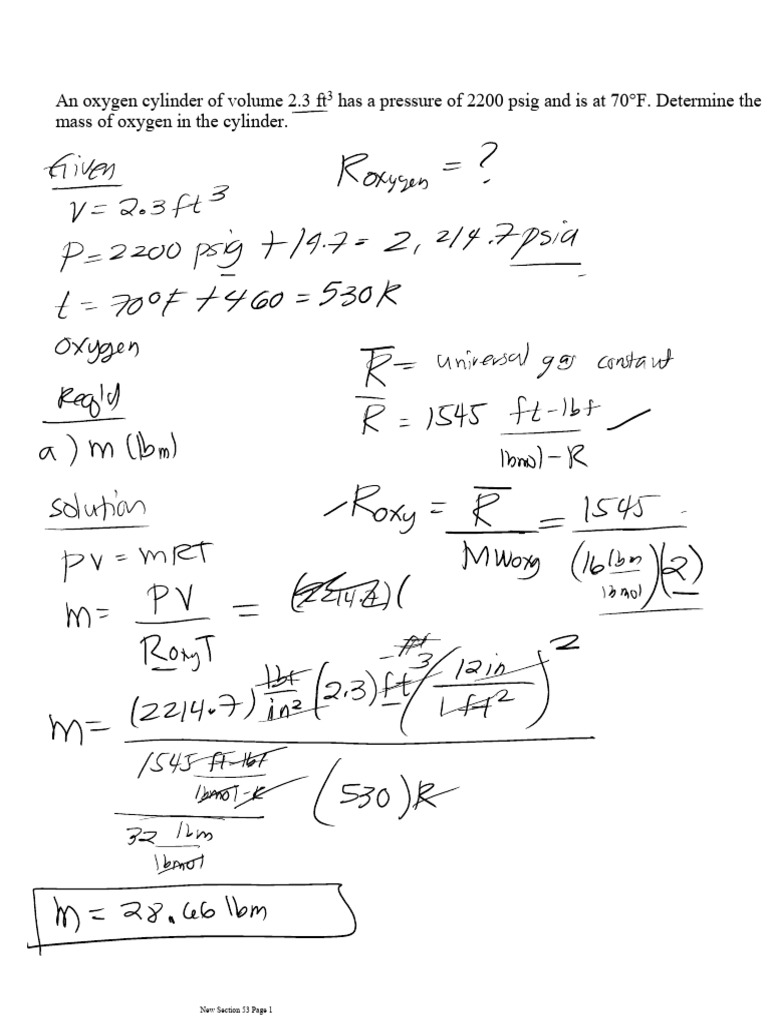 An oxygen cylinder of volume 2.3 ft³ has a pressure of 2200 psig and is at 70°F. Determine the
mass of oxygen in the cylinder.
Given
R oxygen = ?
V = 2.3 ft³
P = 2200 psig + 14.7 = 2,214.7 psia
t = 70°F + 460 = 530 R
oxygen
R̅ = universal gas constant
Req'd
R̅ = 1545 ft-lbf / lbmol-R ✓
a) m (lbm)
solution
Roxy = R̅ / MWoxy = 1545 / (16 lbm/lbmol)(2)
PV = mRT
m = PV / Roxy T = (2214.7)(
m = (2214.7) lbf/in² (2.3) ft³ (12 in / 1 ft²)²
1545 ft-lbf / lbmol-R (530) R
32 lbm / lbmol
m = 28.66 lbm
New Section 53 Page 1